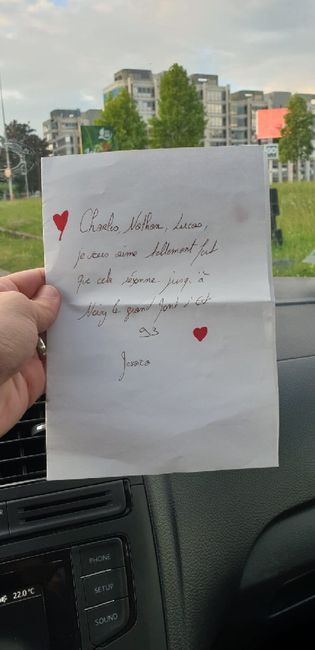 Charles, Nathan, Lucas,
je vous aime tellement fort
que cela résonne jusqu'à
Noisy le grand Mont d'Est
93
Jessica
PHONE
SETUP
SOUND
22.0°C